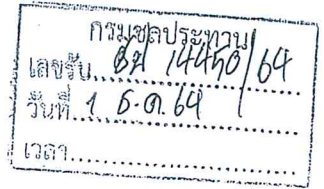 กรมชลประทาน
เลขรับ 14450/64
วันที่ 1 ธ.ค. 64
เวลา